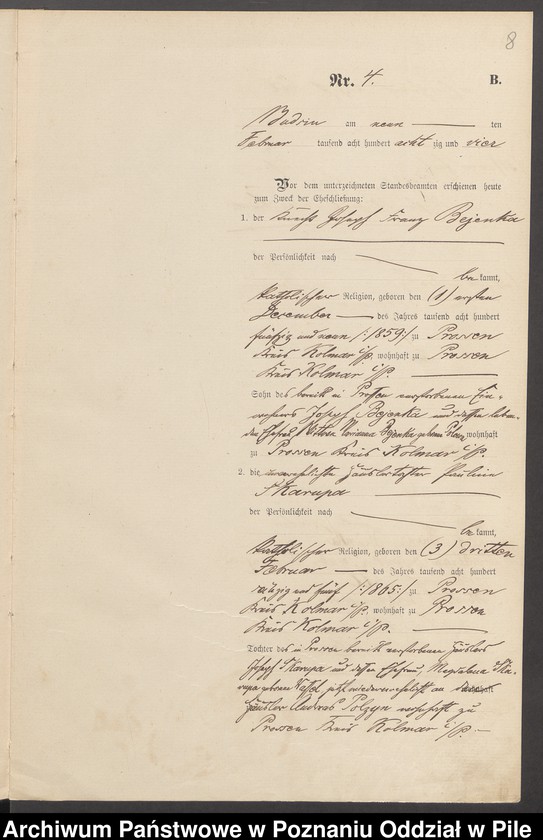 8
Nr. 4. B.
Budsin am neun ten
Februar tausend acht hundert acht zig und vier
Vor dem unterzeichneten Standesbeamten erschienen heute
zum Zweck der Eheschließung:
1. der Knecht Joseph Franz Bejenka
der Persönlichkeit nach
be kannt,
katholischer Religion, geboren den (1) ersten
Dezember des Jahres tausend acht hundert
fünfzig und neun /:1859:/ zu Prossen
Kreis Kolmar i/P. wohnhaft zu Prossen
Kreis Kolmar i/P.
Sohn des bereits in Prossen verstorbenen Ein-
wohners Joseph Bejenka und dessen leben-
den Ehefrau Marianna Bejenka geborne wohnhaft
zu Prossen Kreis Kolmar i/P.
2. die unverehelichte Häuslertochter Pauline
Skarupa
der Persönlichkeit nach
be kannt,
katholischer Religion, geboren den (3) dritten
Februar des Jahres tausend acht hundert
sechzig und fünf /:1865:/ zu Prossen
Kreis Kolmar i/P. wohnhaft zu Prossen
Kreis Kolmar i/P.
Tochter des in Prossen bereits verstorbenen Häuslers
Joseph Skarupa und dessen Ehefrau, Magdalena Ska-
rupa geborne jetzt wiederverehelicht an wohnhaft
Häusler Andreas Polzyn wohnhaft zu
Prossen Kreis Kolmar i/P.
Archiwum Państwowe w Poznaniu Oddział w Pile